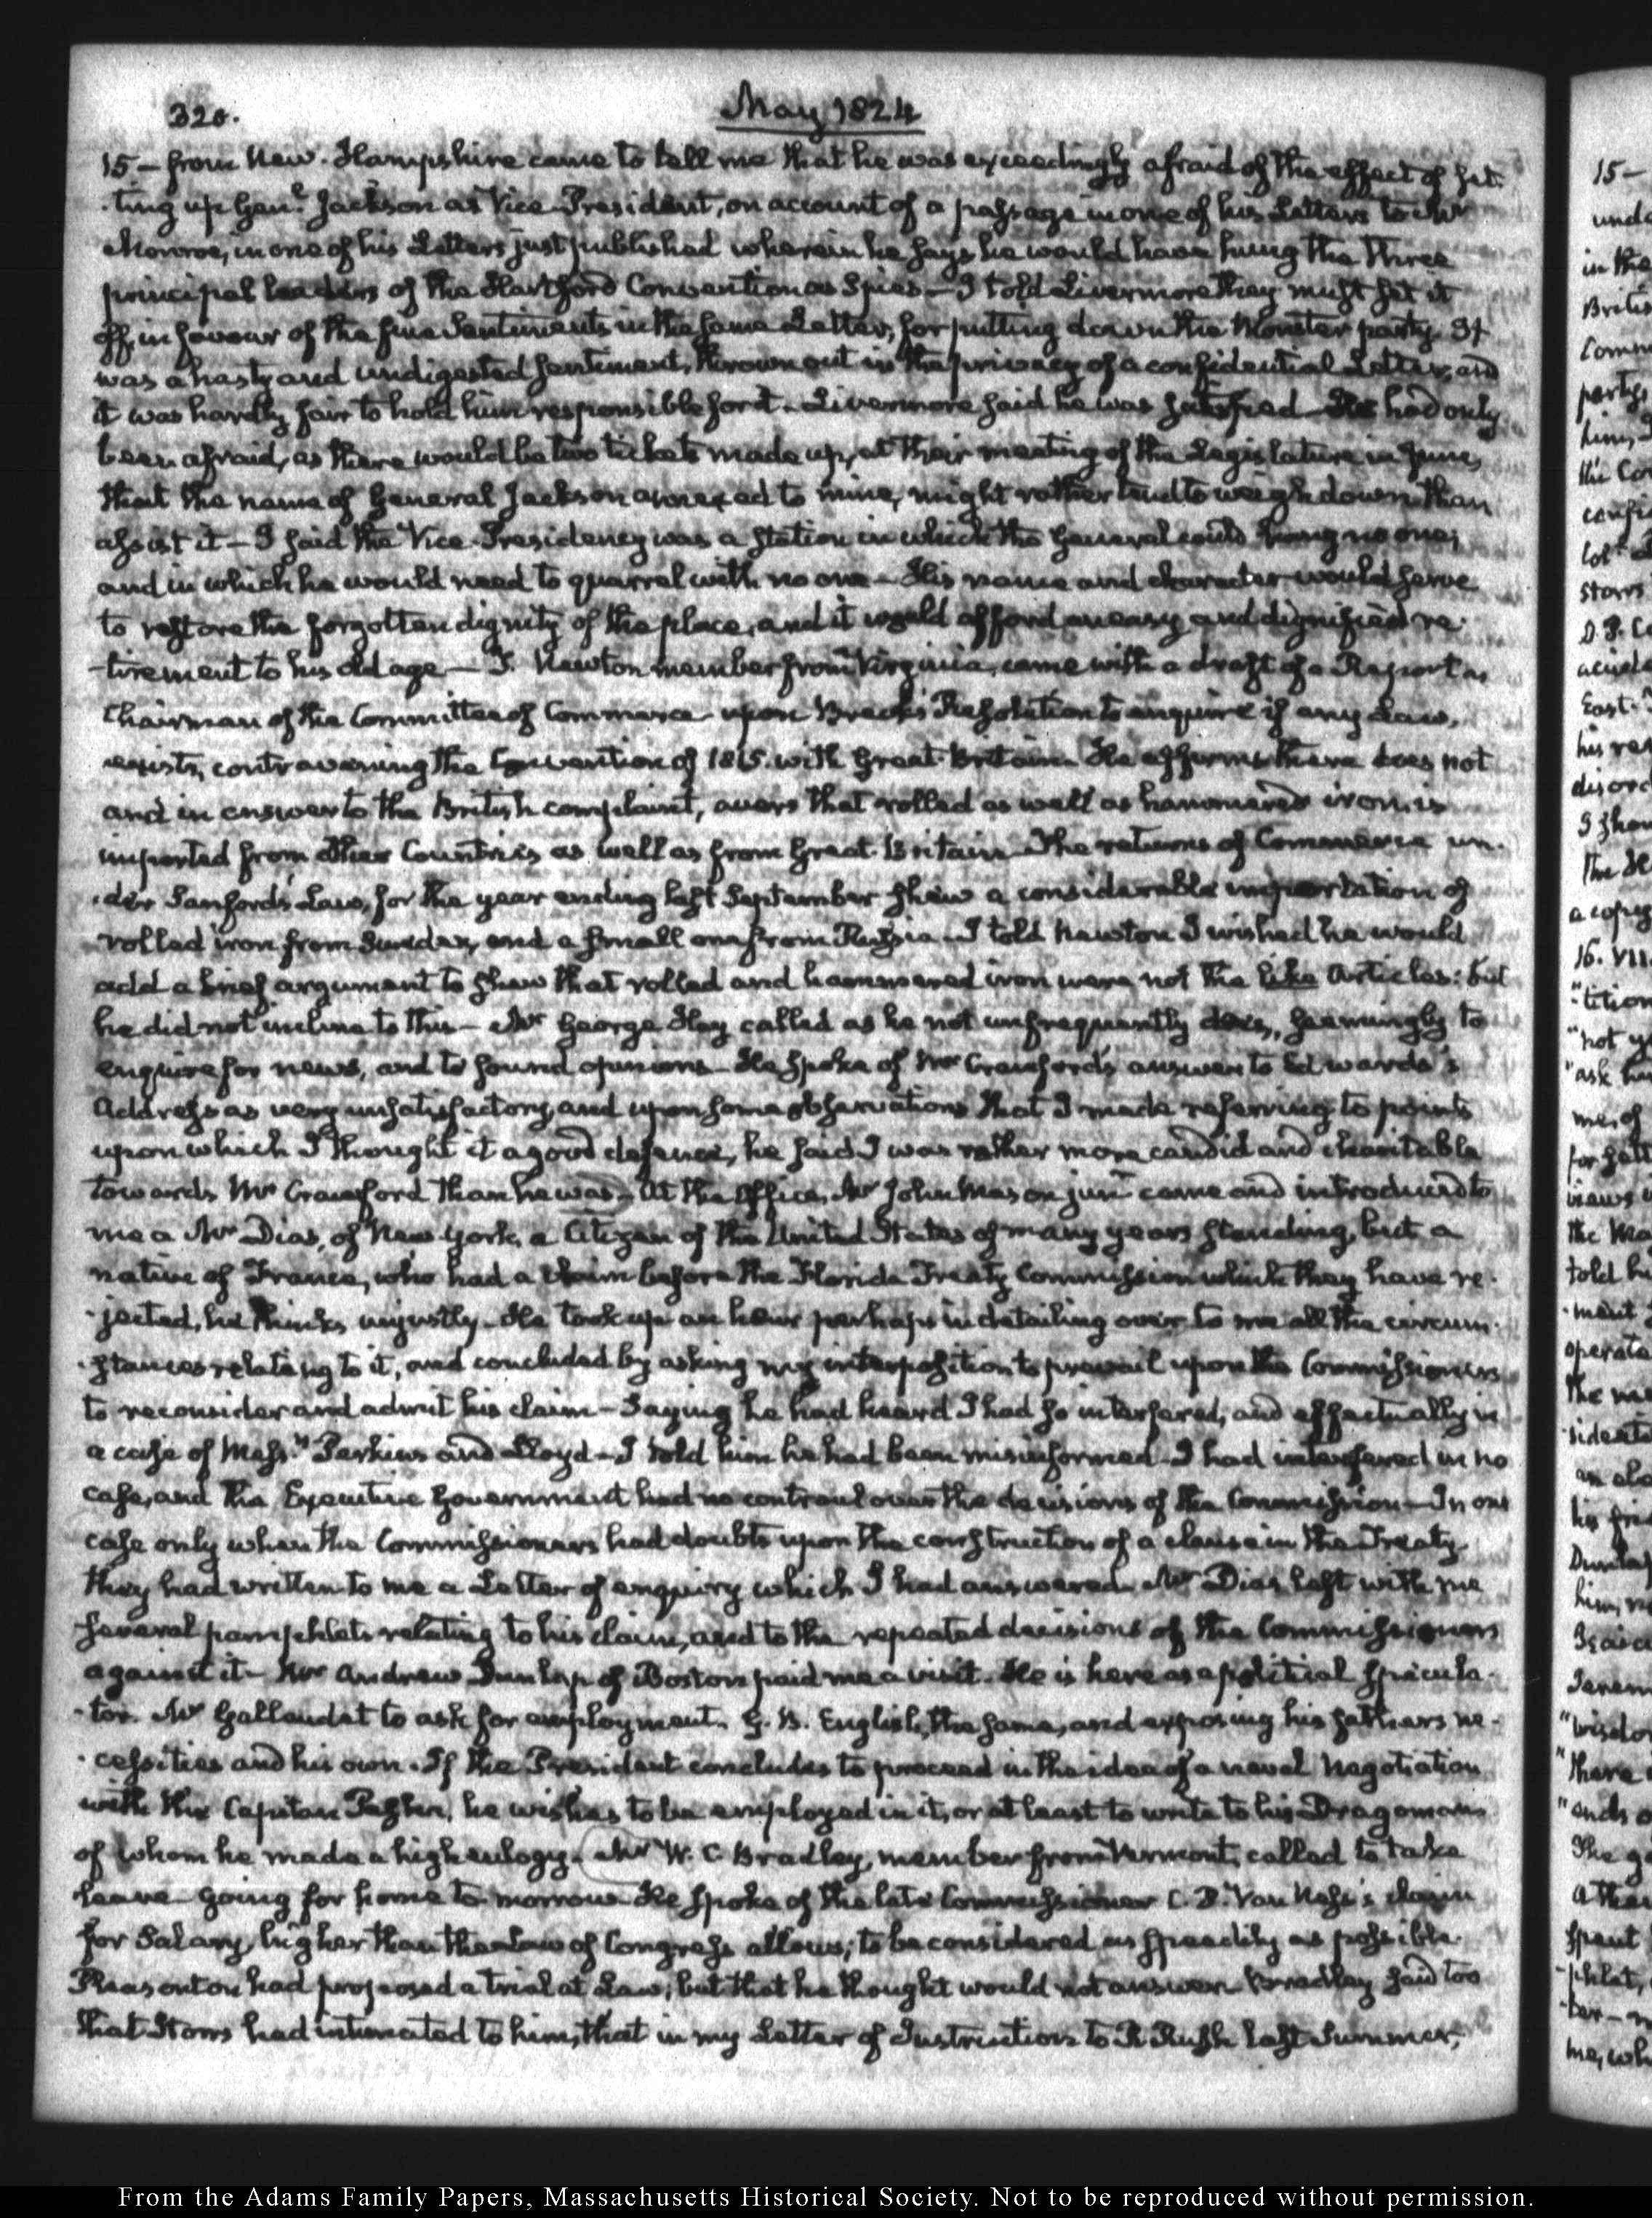 320.
May 1824
15 — from New-Hampshire came to tell me that he was exceedingly afraid of the effect of set-
-ting up Genl. Jackson as Vice-President, on account of a passage in one of his Letters to Mr
Monroe, in one of his Letters just published wherein he says he would have hung the three
principal leaders of the Hartford Convention as Spies — I told Livermore they must set it
off, in favour of the fine Sentiments in the same Letter, for putting down the Monster party. It
was a hasty and undigested sentiment, thrown out in the privacy of a confidential Letter, and
it was hardly fair to hold him responsible for it. Livermore said he was satisfied — He had only
been afraid, as there would be two tickets made up, at their meeting of the Legislature in June,
that the name of General Jackson annexed to mine, might rather tend to weigh down than
assist it — I said the Vice-Presidency was a station in which the General could hang no one;
and in which he would need to quarrel with no one — His name and character would serve
to restore the forgotten dignity of the place, and it would afford an easy and dignified re-
-tirement to his old age — T. Newton member from Virginia, came with a draft of a Report as
Chairman of the Committee of Commerce upon Breck's Resolution to enquire if any Law,
exists, contravening the Convention of 1815. with Great-Britain. He affirms there does not
and in answer to the British complaint, avers that rolled as well as hammered iron, is
imported from other Countries as well as from Great-Britain. The returns of Commerce un-
-der Sanford's Law, for the year ending last September shew a considerable importation of
rolled iron from Sweden, and a small one from Russia. I told Newton I wished he would
add a brief argument to shew that rolled and hammered iron were not the like Articles: but
he did not incline to this — Mr George Hay called as he not unfrequently does, seemingly to
enquire for news, and to sound opinions — He spoke of Mr Crawford's answer to Edwards's
Address as very unsatisfactory, and upon some observations that I made referring to points
upon which I thought it a good defence, he said I was rather more candid and charitable
towards Mr Crawford than he was — At the Office, Mr John Mason junr came and introduced to
me a Mr Dias, of New-York, a Citizen of the United States of many years standing, but a
native of France, who had a claim before the Florida Treaty Commission which they have re-
-jected, he thinks unjustly. He took up an hour perhaps in detailing over to me all the circum-
-stances relating to it, and concluded by asking my interposition to prevail upon the Commissioners
to reconsider and admit his claim — Saying he had heard I had so interfered, and effectually in
a case of Messrs Perkins and Lloyd — I told him he had been misinformed — I had interfered in no
case, and the Executive Government had no controul over the decisions of the Commission — In one
case only when the Commissioners had doubts upon the construction of a clause in the Treaty
they had written to me a Letter of enquiry which I had answered. Mr Dias left with me
several pamphlets relating to his claim, and to the repeated decisions of the Commissioners
against it — Mr Andrew Dunlap of Boston paid me a visit. He is here as a political specula-
-tor. Mr Gallaudet to ask for employment. G. B. English, the same, and exposing his father's ne-
-cessities and his own. If the President concludes to proceed in the idea of a naval Negotiation
with the Capitan Pasha, he wishes to be employed in it, or at least to write to his Dragoman
of whom he made a high eulogy. Mr W. C. Bradley, member from Vermont, called to take
leave — going for home to-morrow — He spoke of the late Commissioner C. P. Van Ness's claim
for Salary, higher than the Law of Congress allows; to be considered as speedily as possible.
Pleasonton had proposed a trial at Law; but that he thought would not answer. Bradley said too
that Storrs had intimated to him, that in my Letter of Instructions to R. Rush last Summer,
15 —
16. VII.
From the Adams Family Papers, Massachusetts Historical Society. Not to be reproduced without permission.